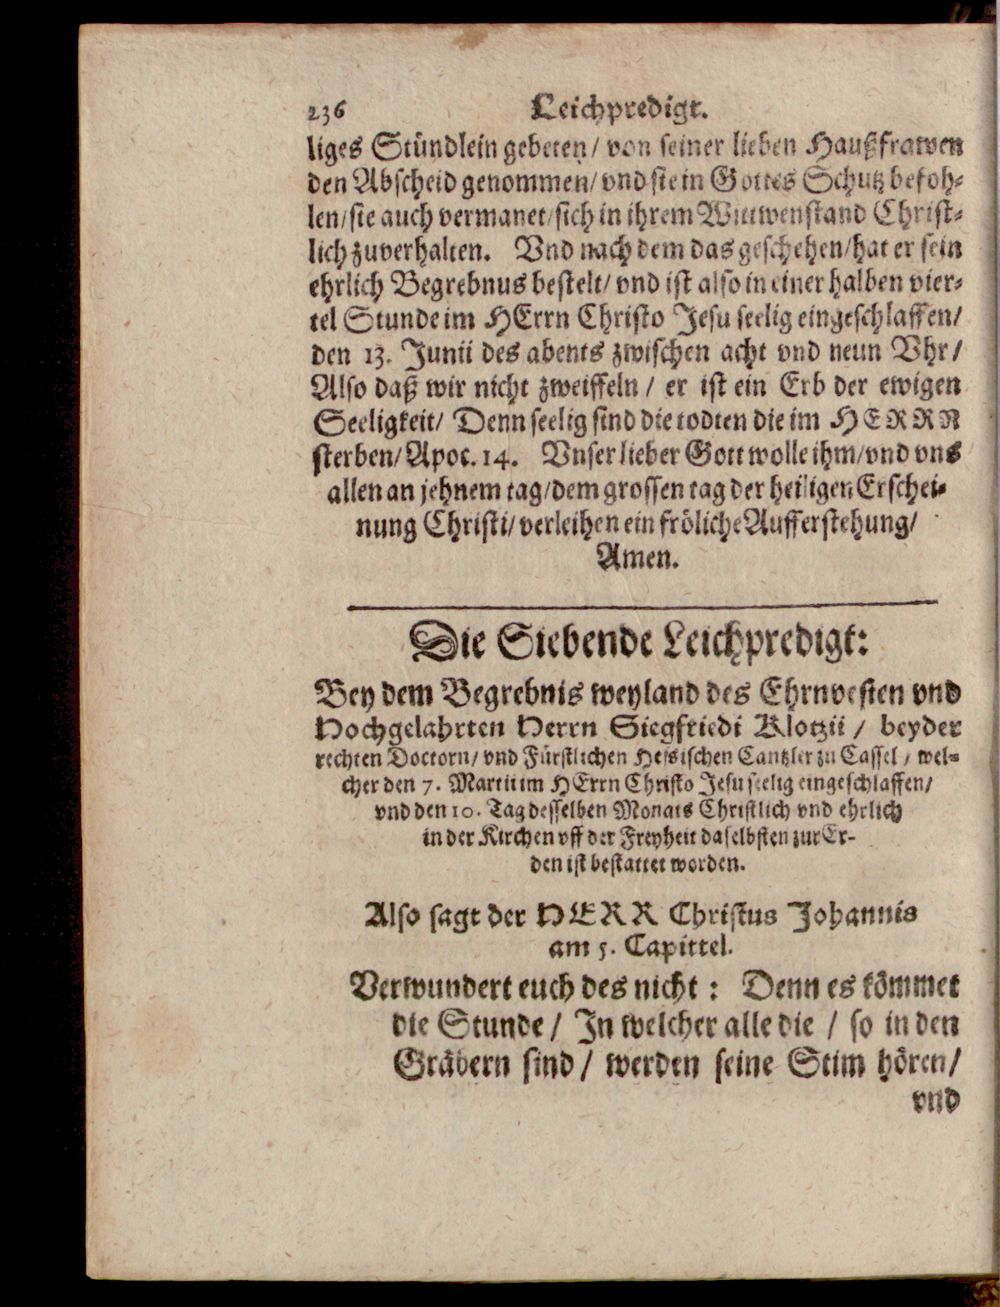 236 Leichpredigt.
liges Stündlein gebeten / von seiner lieben Haußfrawen
den Abscheid genommen / vnd sie in Gottes Schutz befoh-
len / sie auch vermanet / sich in ihrem Wittwenstand Christ-
lich zuverhalten. Vnd nach dem das geschehen / hat er sein
ehrlich Begrebnus bestelt / vnd ist also in einer halben vier-
tel Stunde im HErrn Christo Jesu seelig eingeschlaffen /
den 13. Junii des abents zwischen acht vnd neun Vhr /
Also daß wir nicht zweiffeln / er ist ein Erb der ewigen
Seeligkeit / Denn seelig sind die todten die im HERRN
sterben / Apoc. 14. Vnser lieber Gott wolle ihm / vnd vns
allen an jehnem tag / dem grossen tag der heiligen Erschei-
nung Christi / verleihen ein fröliche Aufferstehung /
Amen.
Die Siebende Leichpredigt:
Bey dem Begrebnis weyland des Ehrnvesten vnd
Hochgelahrten Herrn Siegfriedi Klotzii / beyder
rechten Doctorn / vnd Fürstlichen Hessischen Cantzler zu Cassel / wel-
cher den 7. Martii im HErrn Christo Jesu seelig eingeschlaffen /
vnd den 10. Tag desselben Monats Christlich vnd ehrlich
in der Kirchen vff der Freyheit daselbsten zur Er-
den ist bestattet worden.
Also sagt der HERR Christus Johannis
am 5. Capittel.
Verwundert euch des nicht : Denn es kömmet
die Stunde / In welcher alle die / so in den
Gräbern sind / werden seine Stim hören /
vnd